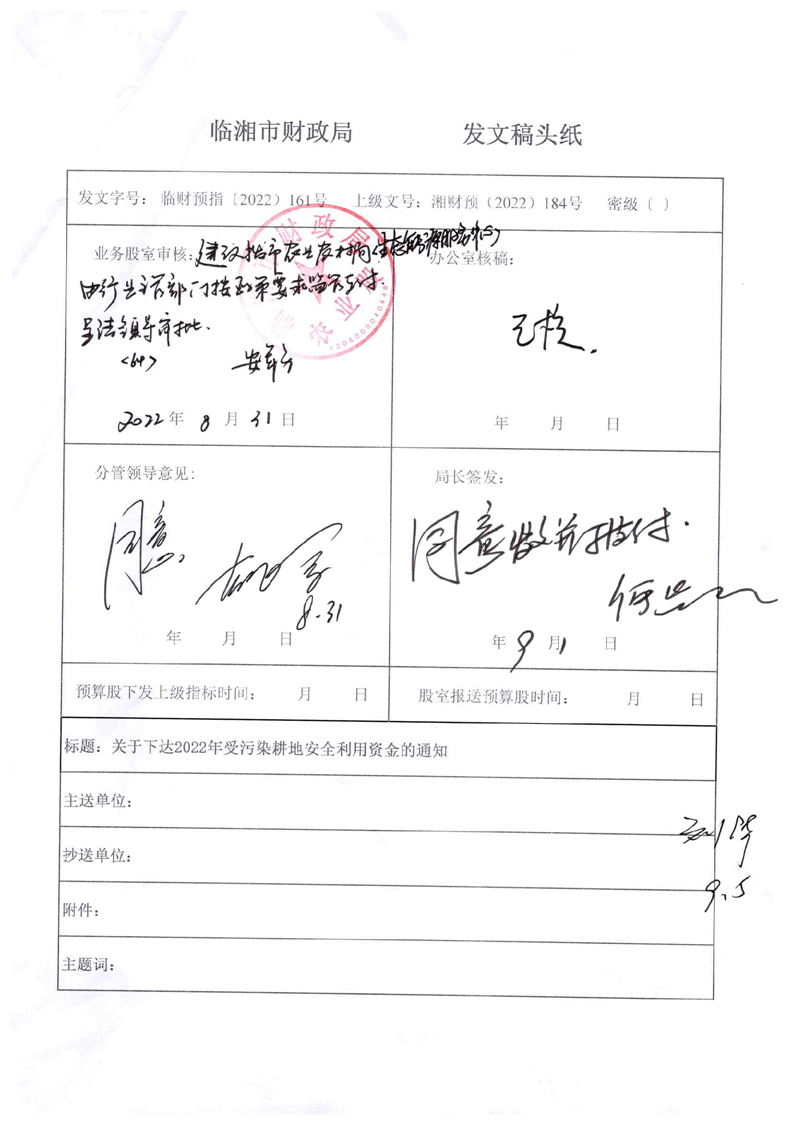 临湘市财政局 发文稿头纸
发文字号： 临财预指〔2022〕161号 上级文号：湘财预（2022）184号 密级〔 〕
业务股室审核：建议拨市农业农村局(生态能源服务中心)
由行业主管部门按政策要求监管支付.
呈请领导审批.
2022年 8 月 31 日
办公室核稿：
已核.
年 月 日
分管领导意见：
同意
8.31
年 月 日
局长签发：
同意收并拨付.
年 9 月 1 日
预算股下发上级指标时间： 月 日
股室报送预算股时间： 月 日
标题：关于下达2022年受污染耕地安全利用资金的通知
主送单位：
抄送单位：
9.5
附件：
主题词：
财政局
农业股